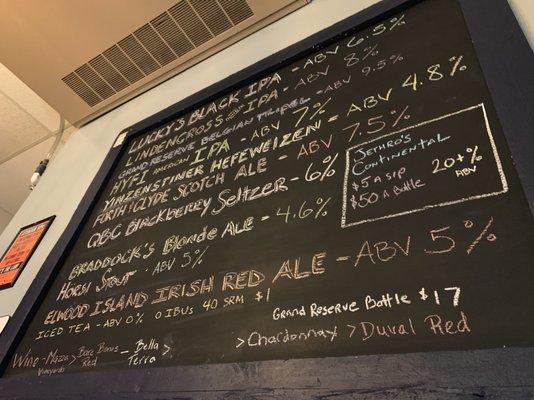 LUCKY'S BLACK IPA - ABV 6.5%
LINDENCROSS IPA - ABV 8%
GRAND RESERVE BELGIAN TRIPEL - ABV 9.5%
HYFI AMERICAN IPA - ABV 7%
YINZENSTINER HEFEWEIZEN - ABV 4.8%
FORTH/CLYDE SCOTCH ALE - ABV 7.5%
QBC BLACKBERRY SELTZER - 6%
BRADDOCK'S Blonde ALE - 4.6%
HORSI Stout - ABV 5%
ELWOOD ISLAND IRISH RED ALE - ABV 5%
ICED TEA - ABV 0% 0 IBUs 40 SRM $1
JETHRO'S
CONTINENTAL
$5 A SIP
$50 A Bottle
20+%
ABV
Grand Reserve Bottle $17
Wine - Mazza Vineyards > Bare Bones Red - Bella Terra >
> Chardonnay > Duval Red